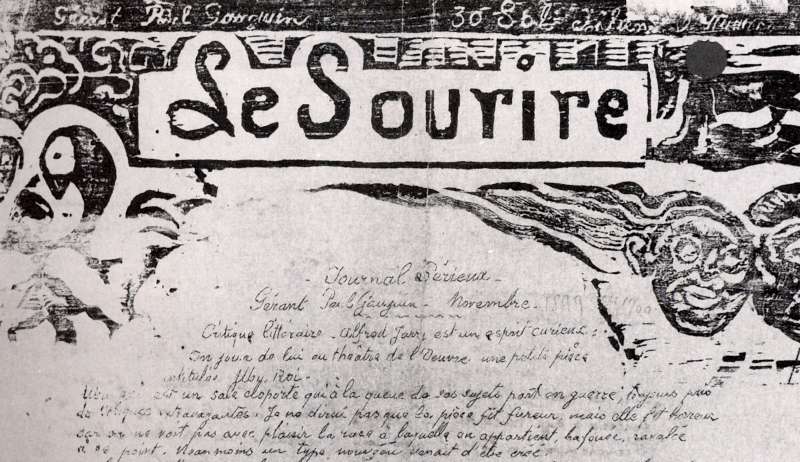 Gérant Paul Gauguin 30 Sols
Le Sourire
Journal Sérieux
Gérant Paul Gauguin - Novembre
Critique littéraire - Alfred Jarry est un esprit curieux :
On joua de lui au théâtre de l'Oeuvre une petite pièce
intitulée Uby. Roi.
est un sale cloporte qui à la queue de ses sujets part en guerre, toujours
de extravagantes. Je ne dirai pas que la pièce fit fureur, mais elle fit horreur
car on ne voit pas avec plaisir la race à laquelle on appartient, bafouée, ravalée
à ce point. Néanmoins un type nouveau venait d'être créé